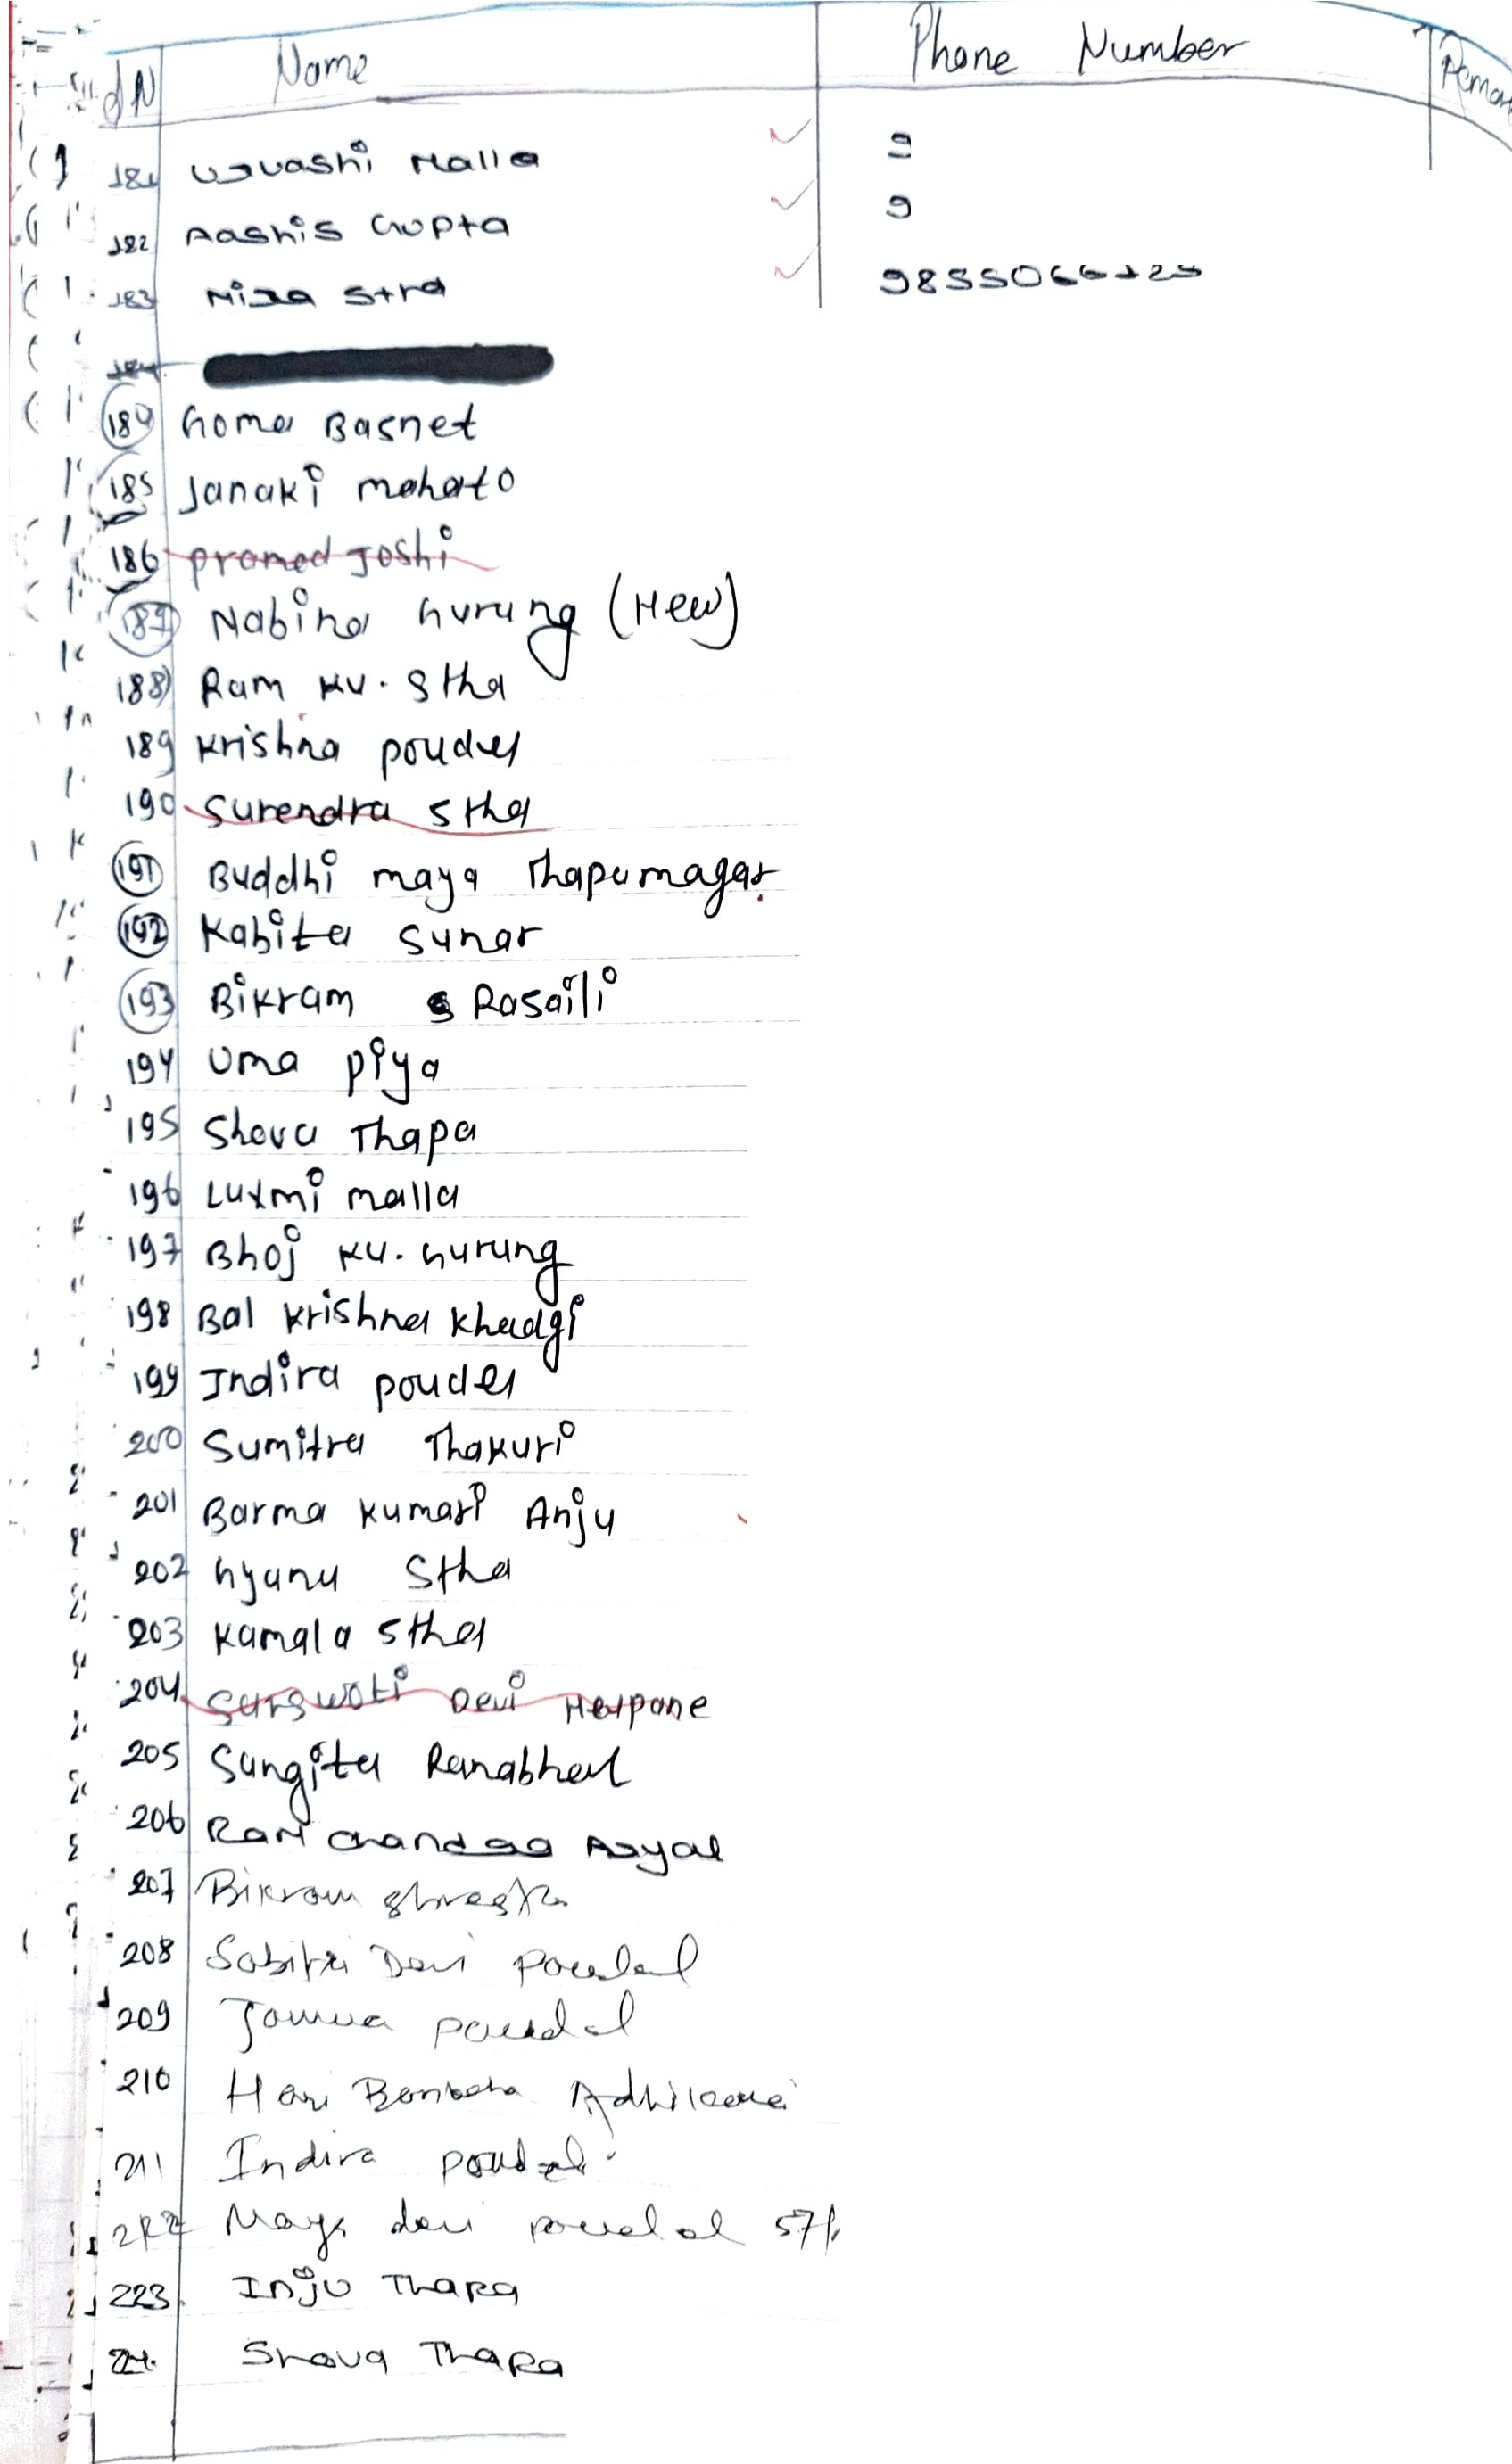 SN Name Phone Number Remar
181 Urvashi Malla 9
182 Aashis Gupta 9
183 Mira Stha 9855066125
184
184 Goma Basnet
185 Janaki mahato
186 pramod Joshi
187 Nabina Gurung (New)
188) Ram Ku. Stha
189 Krishna poudel
190 Surendra Stha
191 Buddhi maya Thapamagar
192 Kabita Sunar
193 Bikram Rasaili
194 Uma piya
195 Shova Thapa
196 Luxmi malla
197 Bhoj Ku. Gurung
198 Bal Krishna Khadgi
199 Indira poudel
200 Sumitra Thakuri
201 Barma Kumari Anju
202 Gyanu Stha
203 Kamala Stha
204 Sarswoti Devi Nerpane
205 Sangita Ranabhat
206 Ram Chandra Aryal
207 Bikram Shrestha
208 Sabitri Devi Poudel
209 Jamuna poudel
210 Hari Adhikari
211 Indira poudel
212 Maya devi poudel
223 Inju Thapa
Shova Thapa